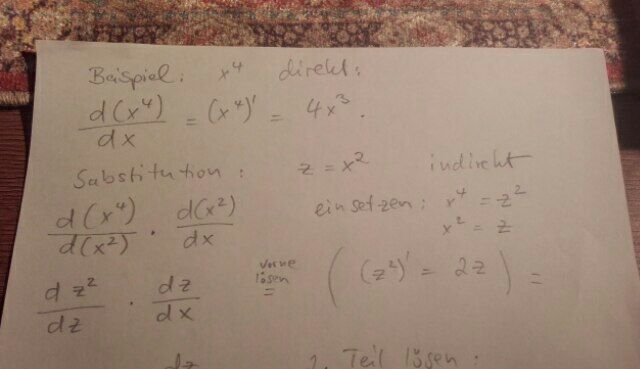 Beispiel: x⁴ direkt:
d(x⁴)/dx = (x⁴)' = 4x³.
Substitution: z = x² indirekt
d(x⁴)/d(x²) · d(x²)/dx einsetzen: x⁴ = z²
x² = z
dz²/dz · dz/dx vorne lösen = ( (z²)' = 2z ) =
dz 2. Teil lösen: